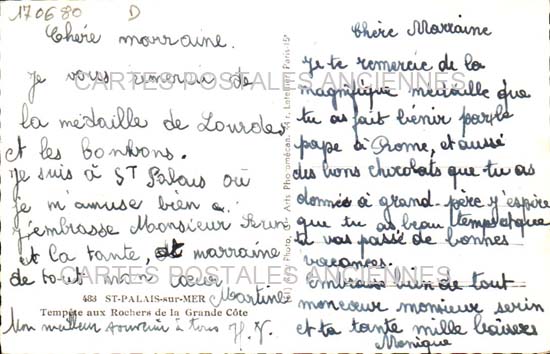 170680 D
Chère marraine.
Je vous remercie de
la médaille de Lourdes
et les bonbons.
Je suis à ST Palais où
je m'amuse bien.
J'embrasse Monsieur
et la tante, marraine
de tout mon cœur
Martine
483 ST-PALAIS-sur-MER
Tempête aux Rochers de la Grande Côte
Mon meilleur souvenir à tous
Chère Marraine
Je te remercie de la
magnifique medaille que
tu as fait bénir par le
pape à Rome, et aussi
des bons chocolats que tu as
donnés à grand-père j'y espère
que tu as beau temps et que
tu vas passé de bonnes
vacances.
Embrasse bien de tout
mon coeur monsieur serin
et ta tante mille baisers
Monique
CARTES POSTALES ANCIENNES
CARTES POSTALES ANCIENNES